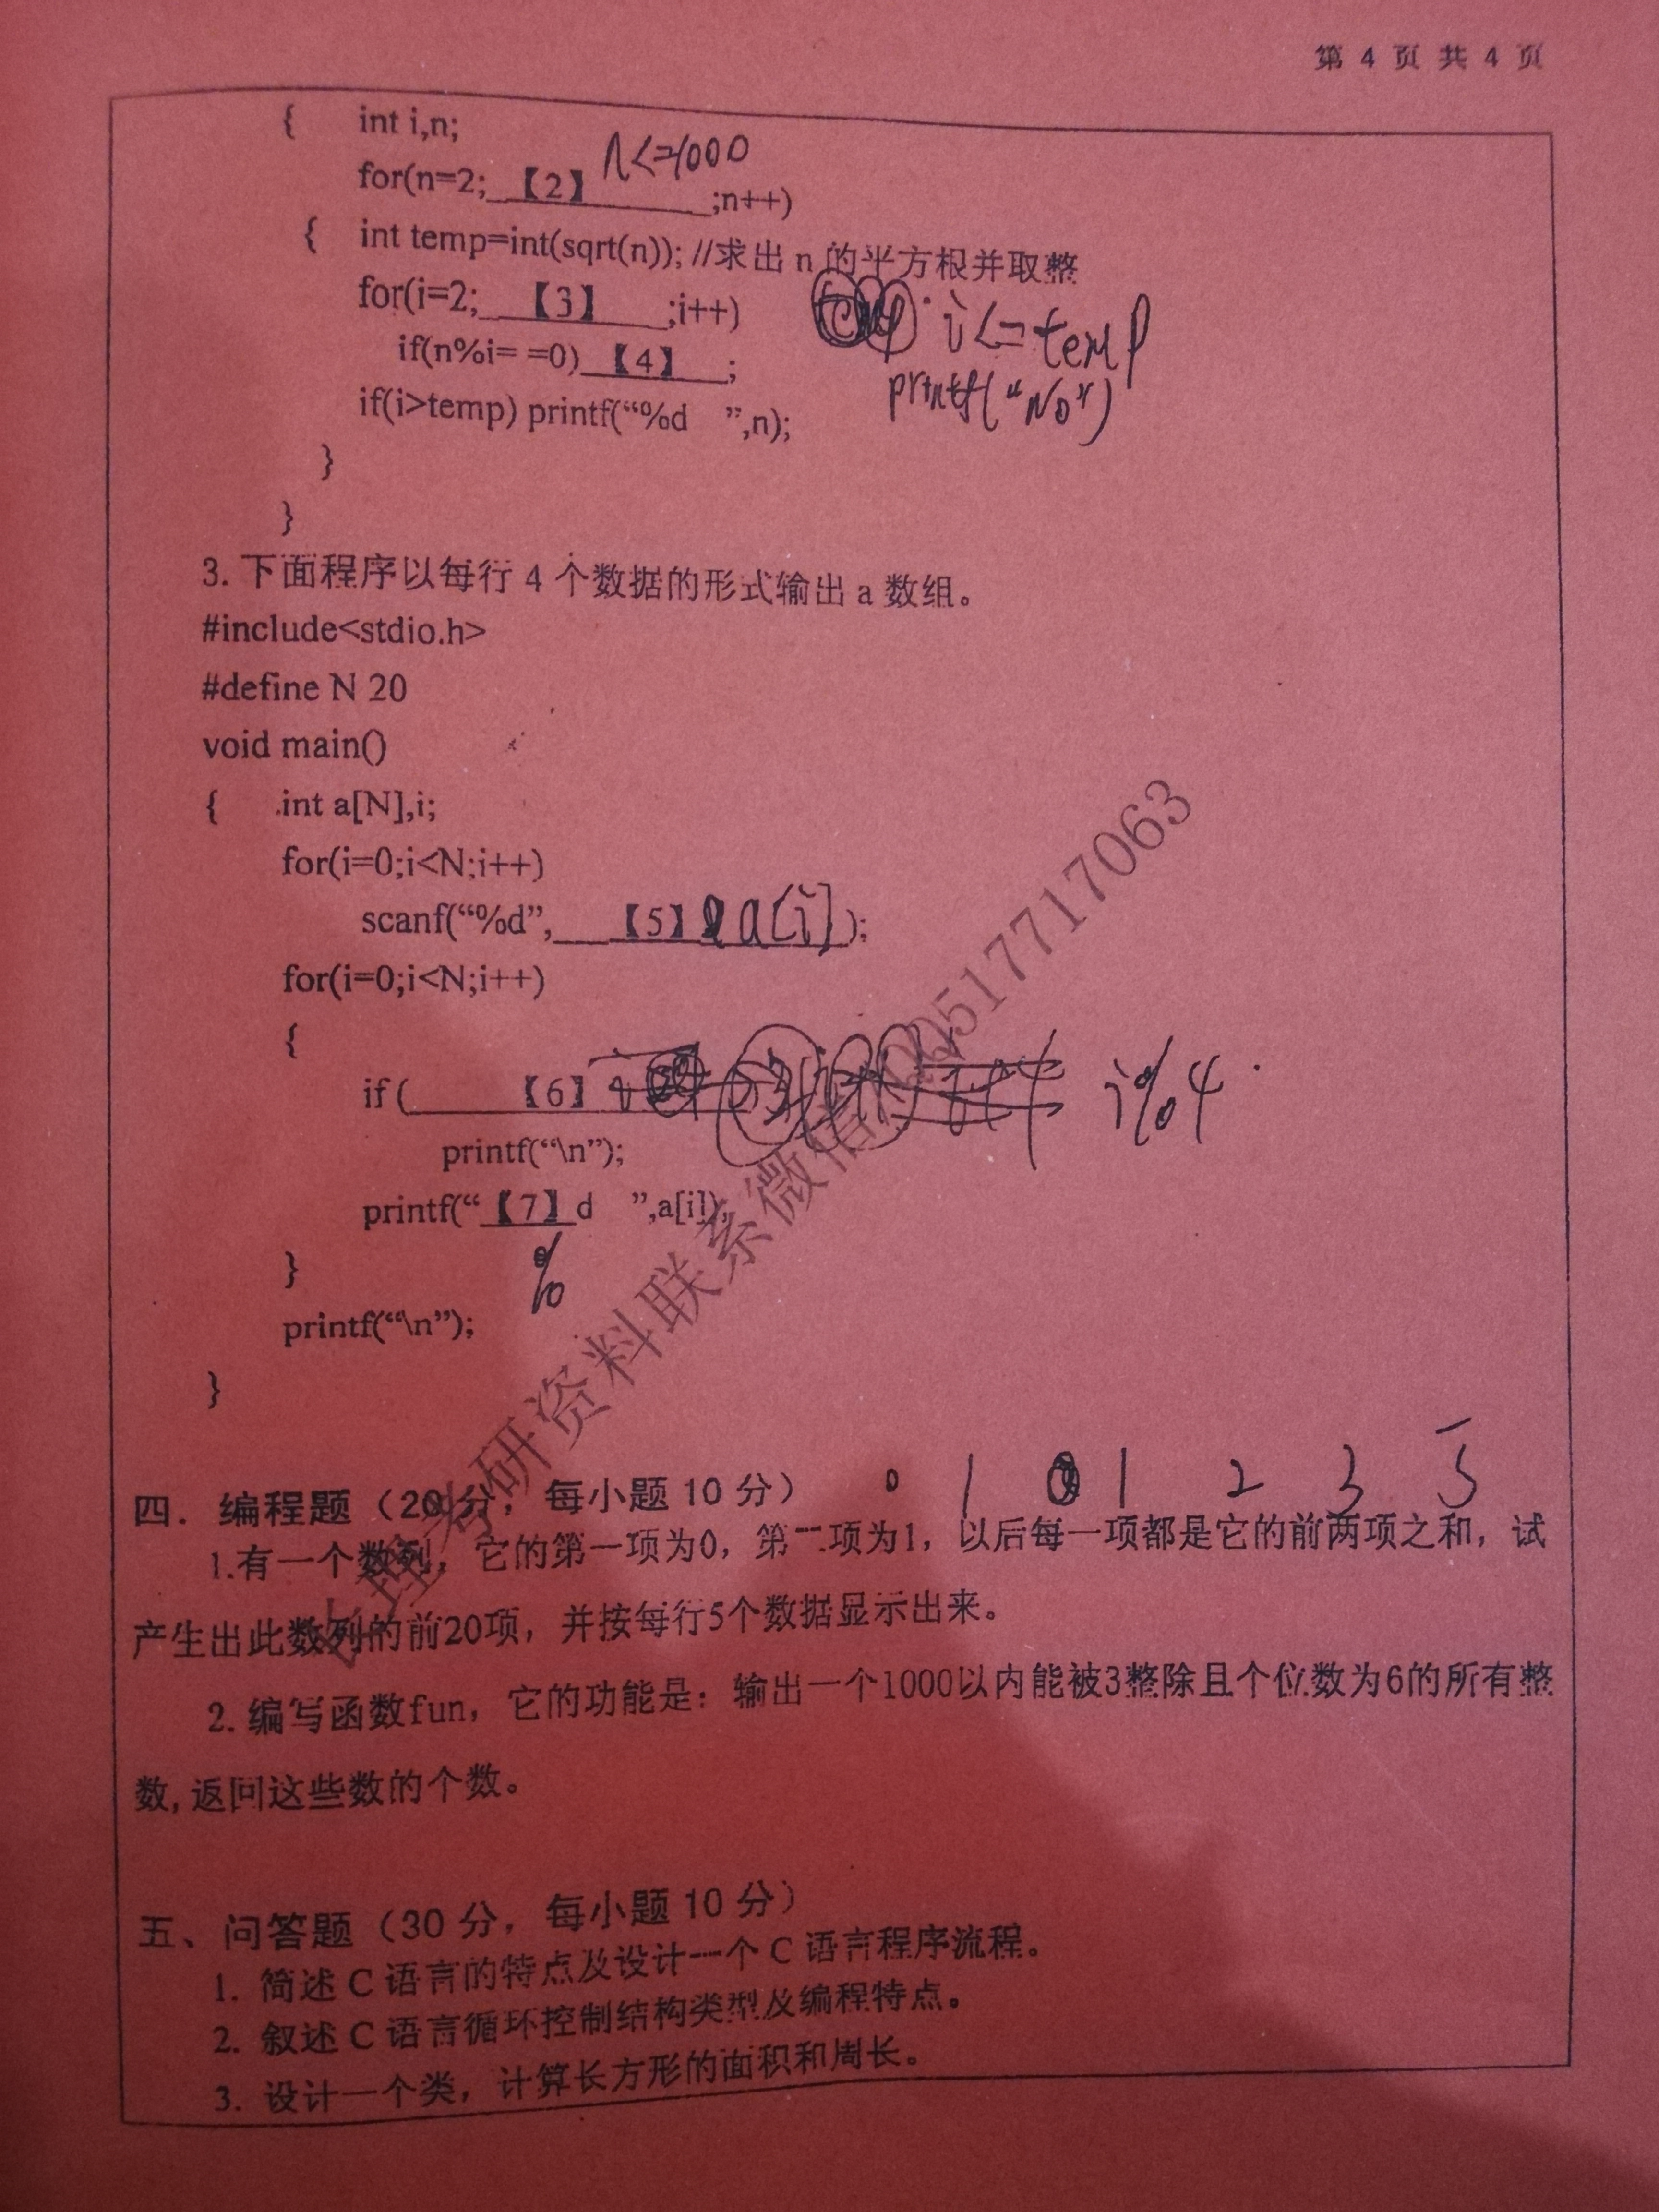 第 4 页 共 4 页
{ int i,n;
for(n=2; 【2】 n<=1000 ;n++)
{ int temp=int(sqrt(n)); //求出 n 的平方根并取整
for(i=2; 【3】 ;i++) i<=temp
if(n%i= =0) 【4】 ; printf("No")
if(i>temp) printf(“%d ”,n);
}
}
3. 下面程序以每行 4 个数据的形式输出 a 数组。
#include<stdio.h>
#define N 20
void main()
{ int a[N],i;
for(i=0;i<N;i++)
scanf(“%d”, 【5】 a[i] );
for(i=0;i<N;i++)
{
if ( 【6】 i%4
printf(“\n”);
printf(“ 【7】 d ”,a[i]);
%
}
printf(“\n”);
}
0 1 1 2 3 5
四. 编程题（20 分，每小题 10 分）
1.有一个数列，它的第一项为0，第二项为1，以后每一项都是它的前两项之和，试
产生出此数列的前20项，并按每行5个数据显示出来。
2. 编写函数fun，它的功能是：输出一个1000以内能被3整除且个位数为6的所有整
数,返回这些数的个数。
五、问答题（30 分，每小题 10 分）
1. 简述 C 语言的特点及设计一个 C 语言程序流程。
2. 叙述 C 语言循环控制结构类型及编程特点。
3. 设计一个类，计算长方形的面积和周长。
考研资料联系微信 517717063